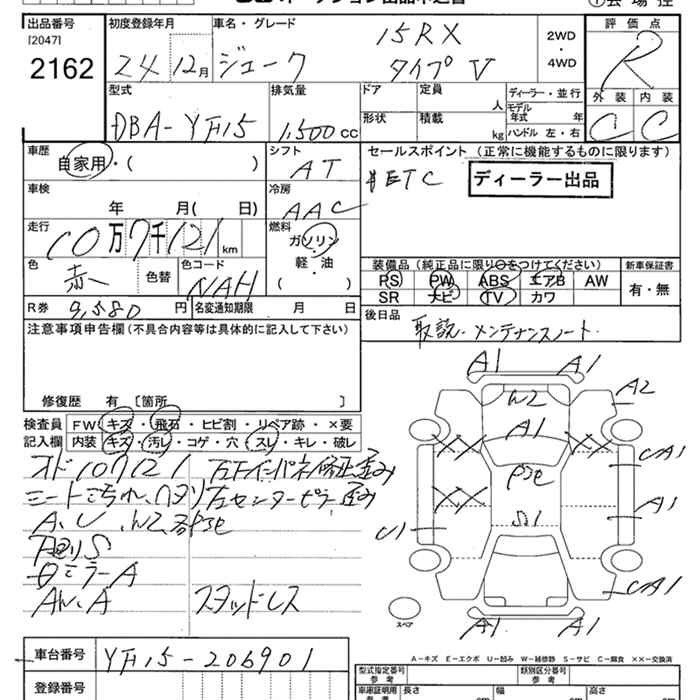 出品番号
[2047]
2162
初度登録年月
24 12月
車名・グレード
ジューク
15RX
タイプV
2WD
・
4WD
評価点
R
外装 内装
C C
型式
DBA-YF15
排気量
1,500cc
ドア
定員
人
形状
積載
kg
ディーラー・並行
モデル年式 年
ハンドル 左・右
車歴
自家用・( )
シフト
AT
セールスポイント (正常に機能するものに限ります)
ETC
ディーラー出品
車検
年 月( 日)
冷房
AAC
走行
10万7千121km
燃料
ガソリン
軽・油
( )
色
赤
色替
色コード
NAH
装備品 (純正品に限り○をつけてください)
PS PW ABS エアB AW
SR ナビ TV カワ
新車保証書
有・無
R券 9,580円
名変通知期限 月 日
後日品
取説・メンテナンスノート
注意事項申告欄 (不具合内容等は具体的に記入して下さい)
修復歴 有 〔箇所
検査員
記入欄
FW キズ・飛石・ヒビ割・リペア跡・×要
内装 キズ・汚レ・コゲ・穴・スレ・キレ・破レ
シート
A、U
ミラーA
AW、A
スタッドレス
A1 A1
W2
A2
A1
A1
S1
A1
U1
A1 A1
スペア
A-キズ E-エクボ U-凹み W-補修跡 S-サビ C-腐食 ××-交換済
車台番号
YF15-206901
登録番号
型式指定番号
参考
類別区分番号
参考
車庫証明用
参考
長さ 幅 高さ
cm cm cm